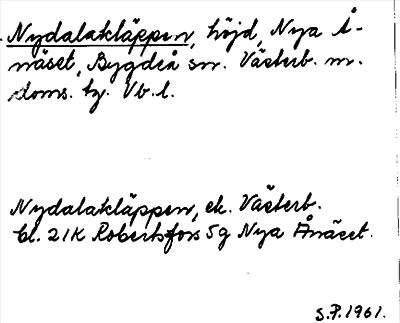 Nydalakläppen, höjd, Nya Å-
näset, Bygdeå sn. Västerb. n.
doms. tg. Vb. l.
Nydalakläppen, ek. Västerb.
bl. 21K Robertsfors 5g Nya Ånäset.
S.P. 1961.